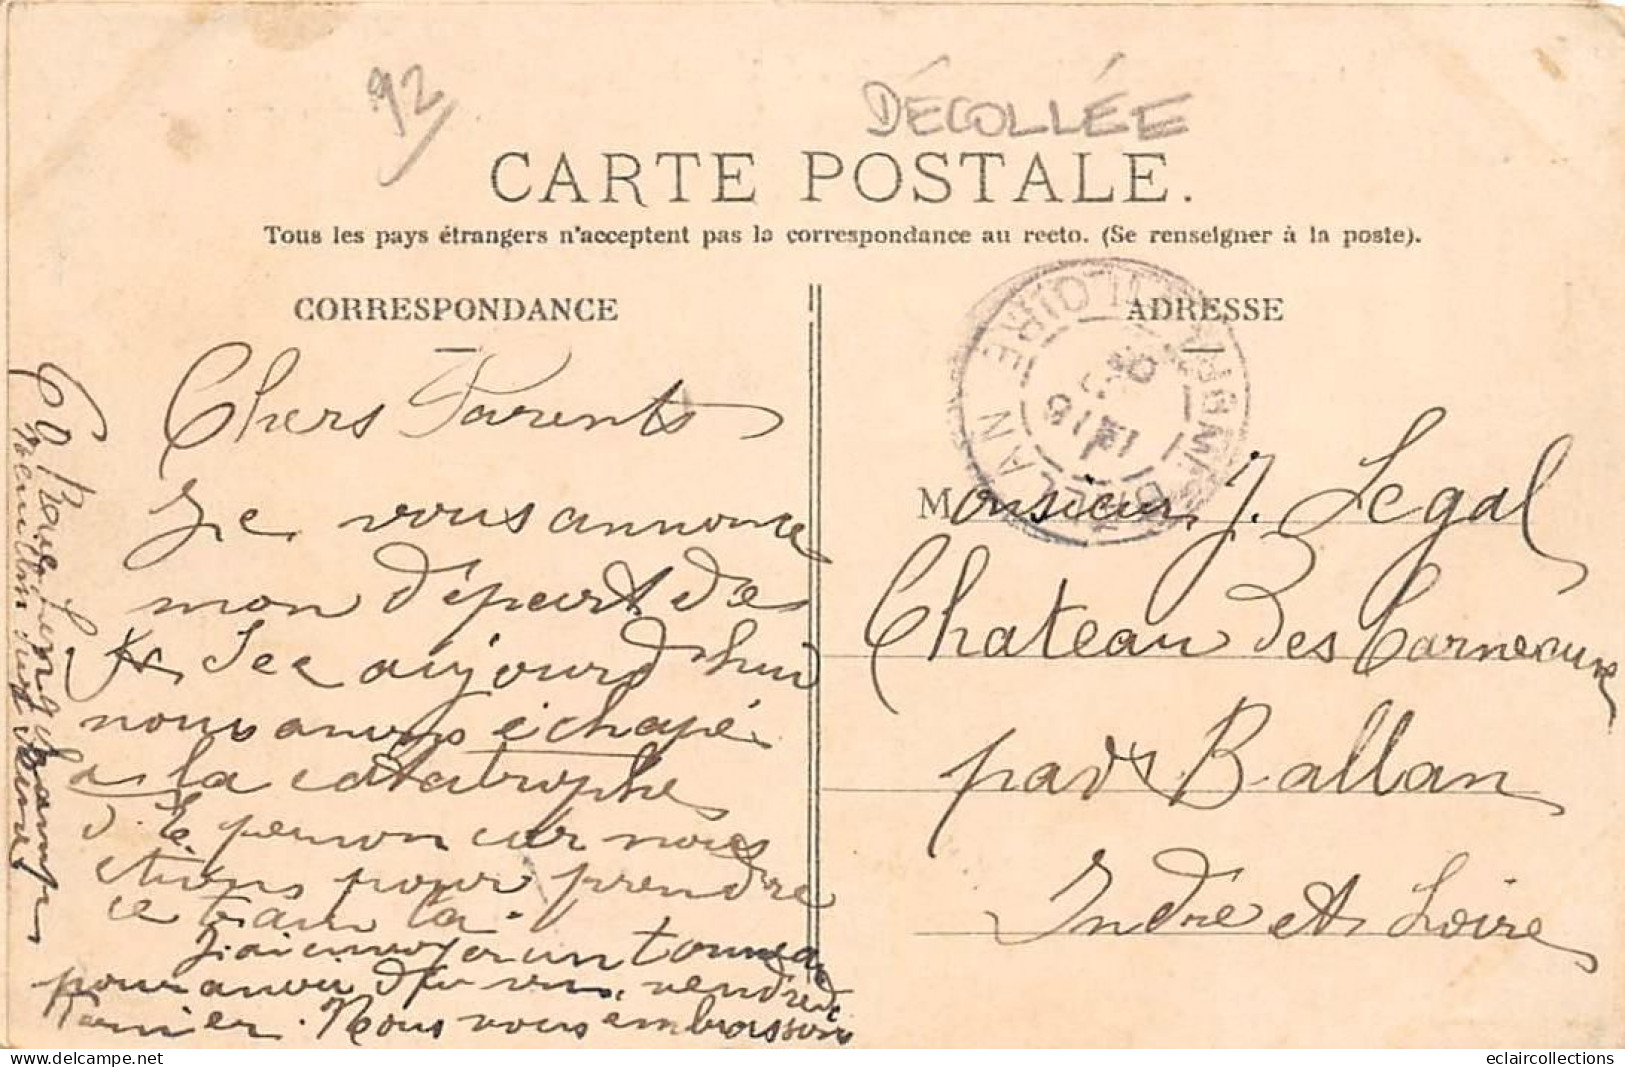 92
DÉCOLLÉE
CARTE POSTALE.
Tous les pays étrangers n'acceptent pas la correspondance au recto. (Se renseigner à la poste).
CORRESPONDANCE
ADRESSE
Chers Parents
Je vous annonce
mon départ de
aujourd'hui
nous avons échapé
a la catastrophe
d'Epernon car nous
etions pour prendre
ce train la.
J'ai envoyer un tonneau
pour avoir du vin vendredi
dernier. Nous vous embrassons
60 Rue
Neuilly sur Seine
Monsieur J. Legal
Chateau des Carneaux
par Ballan
Indre et Loire
eclaircollections